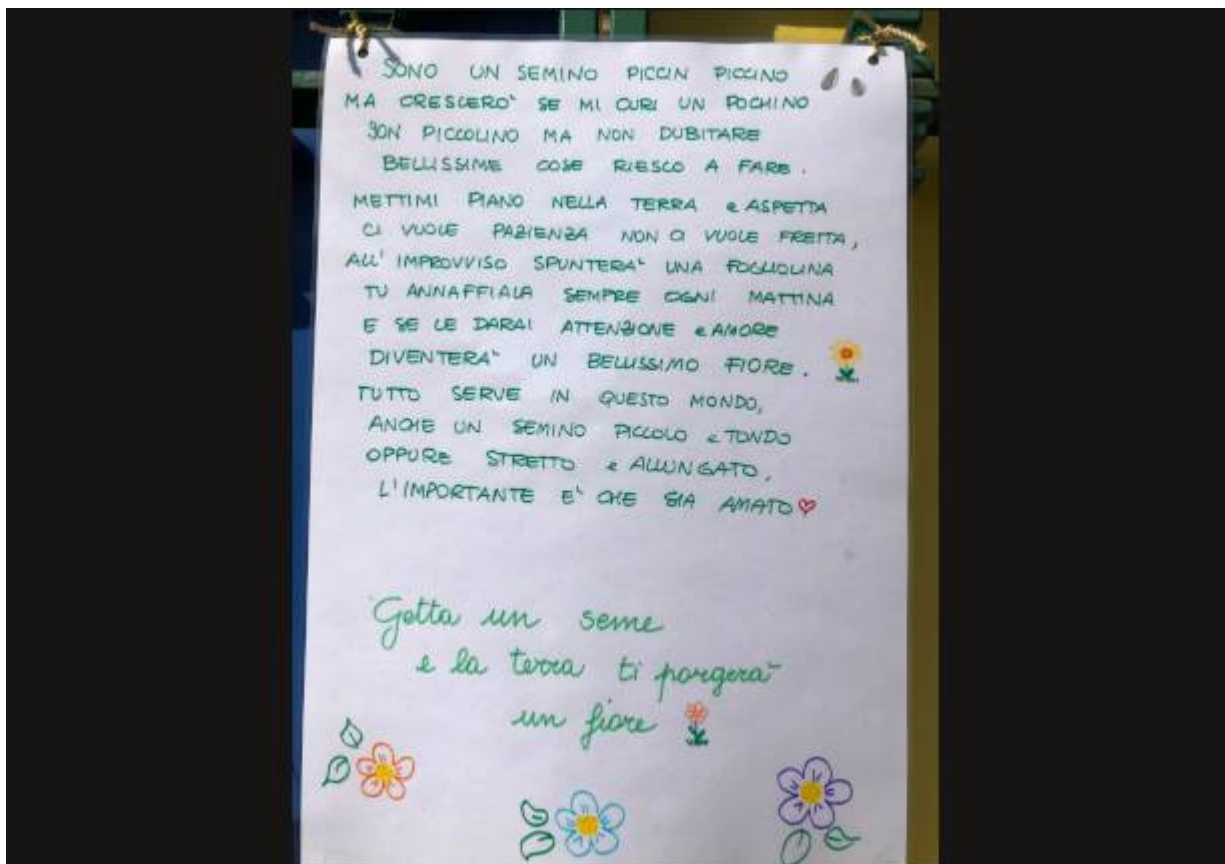 SONO UN SEMINO PICCIN PICCINO
MA CRESCERO' SE MI CURI UN POCHINO
SON PICCOLINO MA NON DUBITARE
BELLISSIME COSE RIESCO A FARE.
METTIMI PIANO NELLA TERRA e ASPETTA
CI VUOLE PAZIENZA NON CI VUOLE FRETTA,
ALL'IMPROVVISO SPUNTERA' UNA FOGLIOLINA
TU ANNAFFIALA SEMPRE OGNI MATTINA
E SE LE DARAI ATTENZIONE e AMORE
DIVENTERA' UN BELLISSIMO FIORE.
TUTTO SERVE IN QUESTO MONDO,
ANCHE UN SEMINO PICCOLO e TONDO
OPPURE STRETTO e ALLUNGATO,
L'IMPORTANTE E' CHE SIA AMATO
Getta un seme
e la terra ti porgerà
un fiore